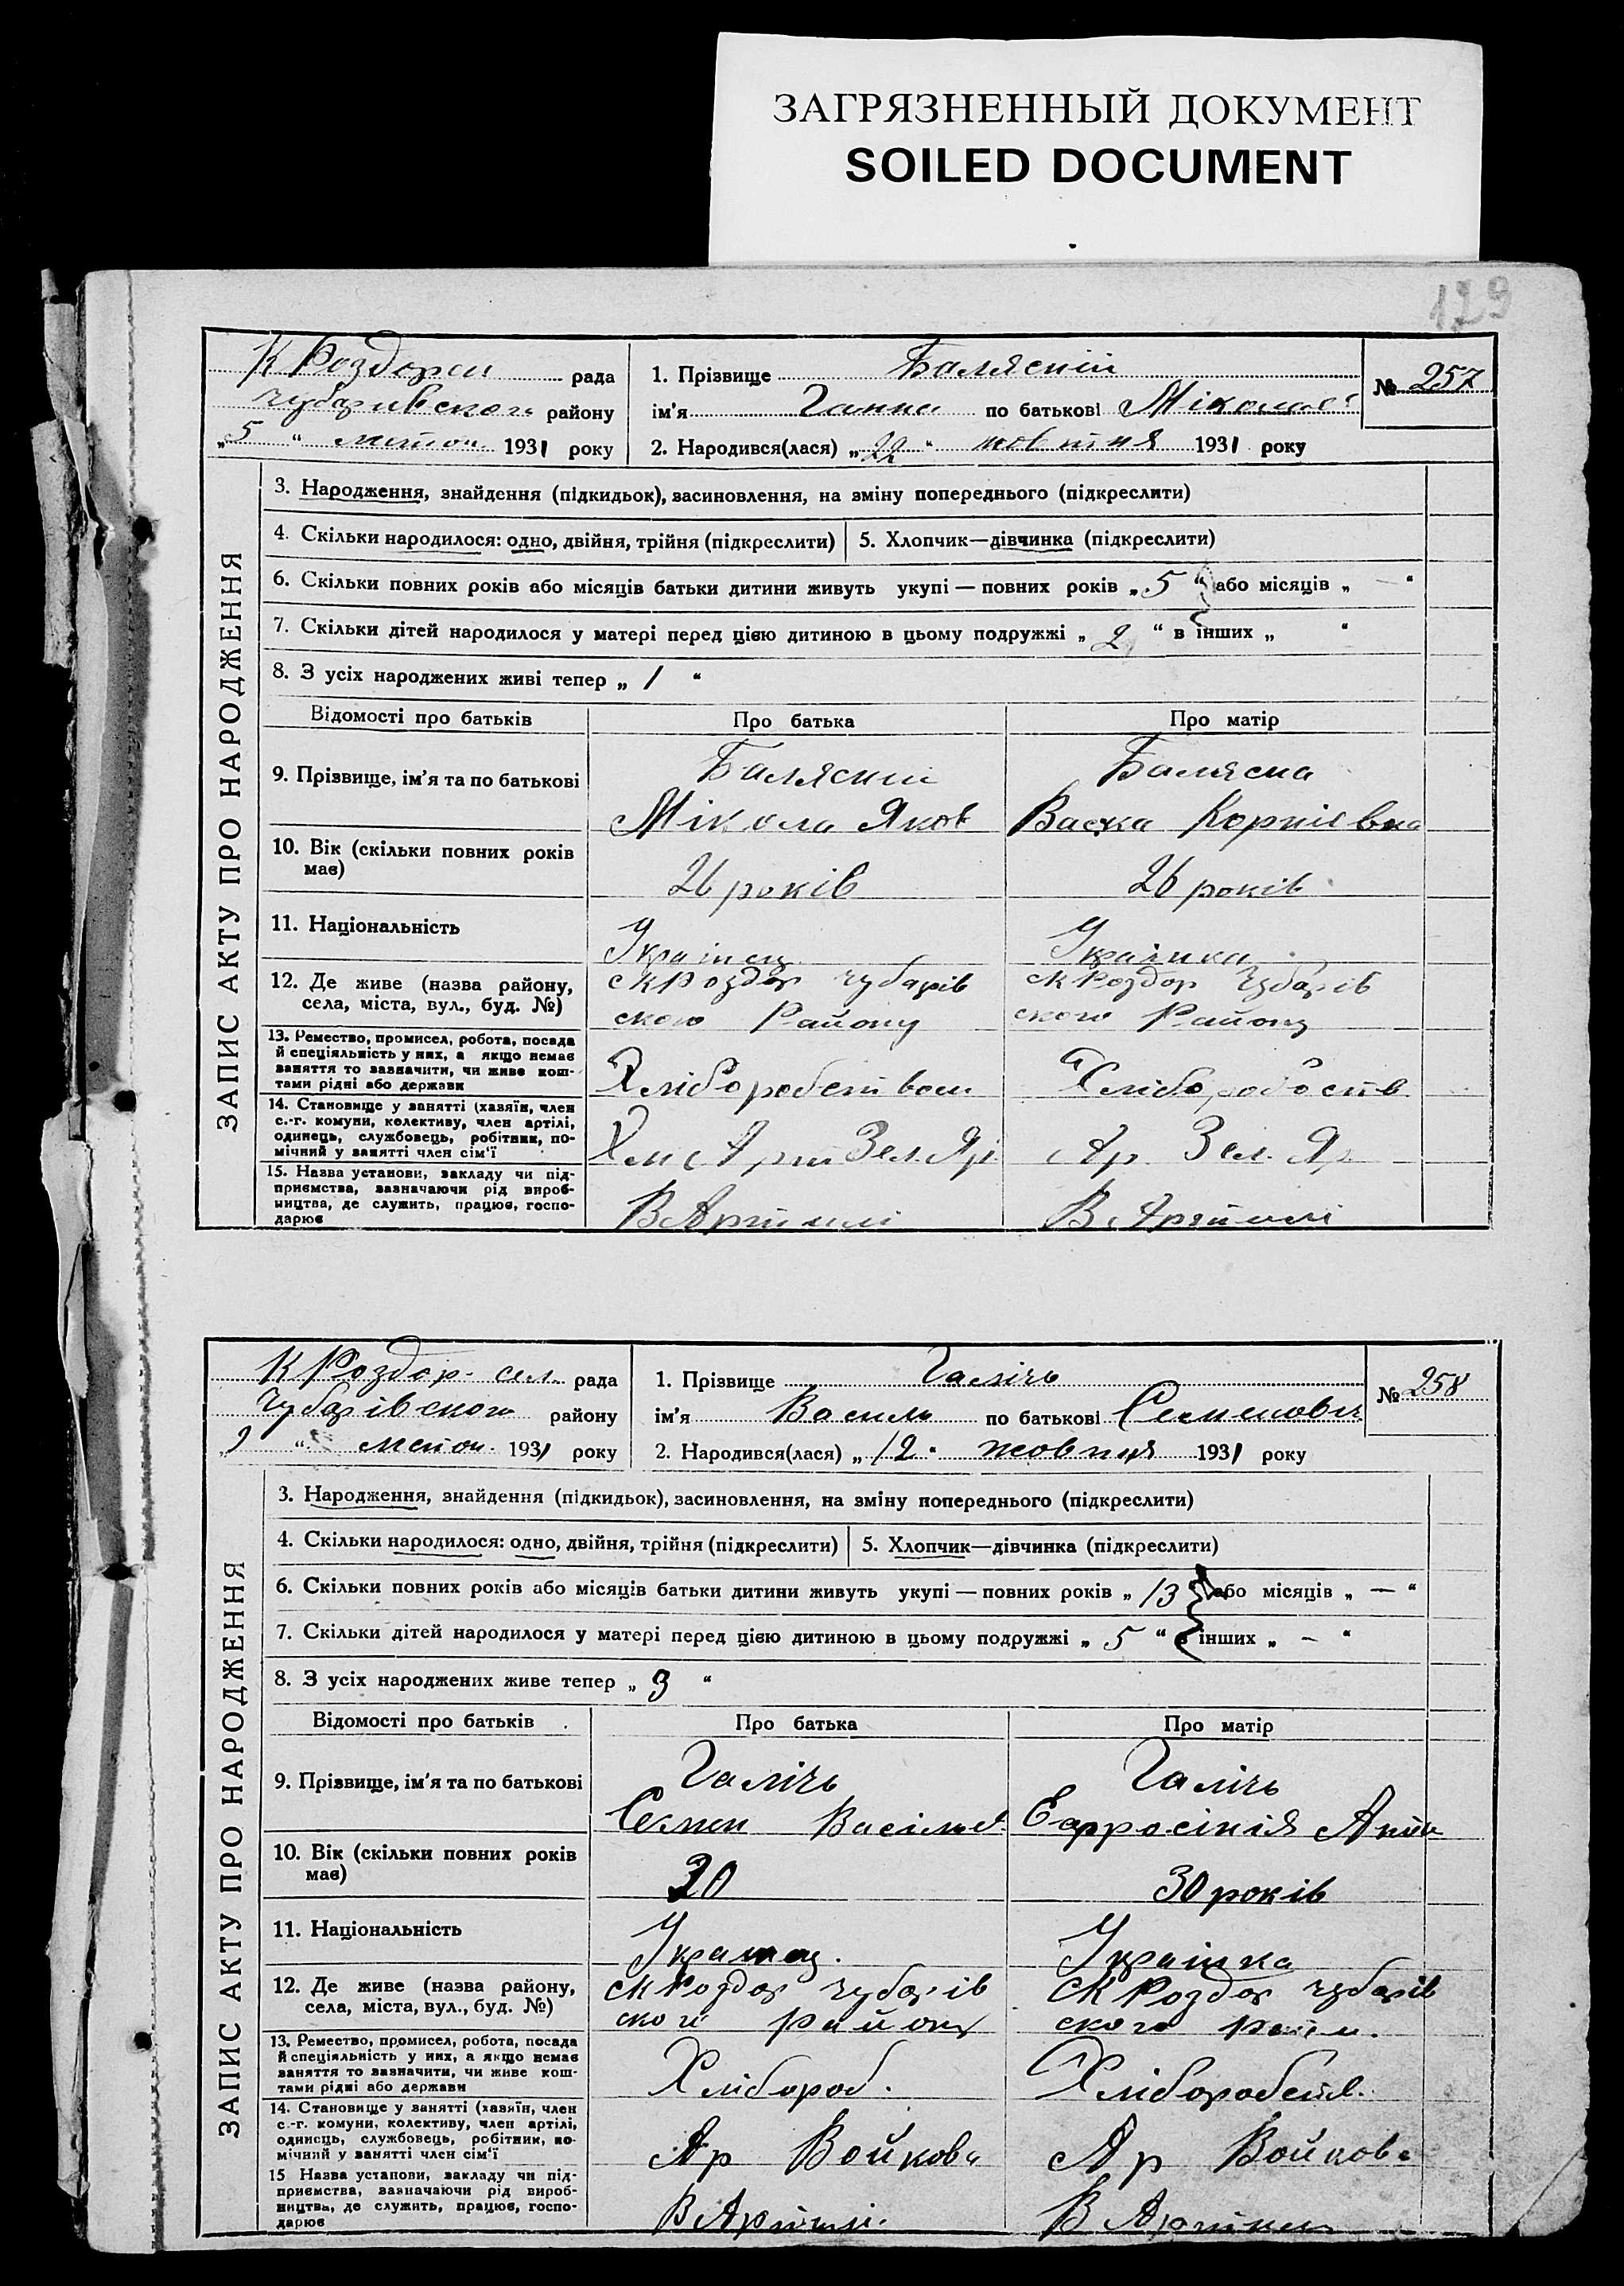 ЗАГРЯЗНЕННЫЙ ДОКУМЕНТ
SOILED DOCUMENT
129
К Роздорси рада
Чубарівского району
„5“ листоп. 1931 року
1. Прізвище Баляский
ім'я Ганна по батькові Міколає
2. Народився(лася) „22“ жовтня 1931 року
№ 257
ЗАПИС АКТУ ПРО НАРОДЖЕННЯ
3. Народження, знайдення (підкидьок), засиновлення, на зміну попереднього (підкреслити)
4. Скільки народилося: одно, двійня, трійня (підкреслити) 5. Хлопчик—дівчинка (підкреслити)
6. Скільки повних років або місяців батьки дитини живуть укупі — повних років „5“ або місяців „—“
7. Скільки дітей народилося у матері перед цією дитиною в цьому подружжі „2“ в інших „ “
8. З усіх народжених живі тепер „1“
Відомості про батьків Про батька Про матір
9. Прізвище, ім'я та по батькові Баляский Баляска
Мікола Яков Васка Корнієвна
10. Вік (скільки повних років
має) 26 років 26 років
11. Національність Українец Українка
12. Де живе (назва району, с К Роздор Чубарів с К Роздор Чубарів
села, міста, вул., буд. №) ского Району ского Району
13. Ремество, промисел, робота, посада
й спеціяльність у них, а якщо немає
заняття то зазначити, чи живе кош-
тами рідні або держави Хліборобством Хліборобств
14. Становище у занятті (хазяїн, член
с.-г. комуни, колективу, член артілі,
одинець, службовець, робітник, по-
мічний у занятті член сім'ї Арт Зел. Яр. Ар. Зел. Яр
15. Назва установи, закладу чи під-
приємства, зазначаючи рід вироб-
ництва, де служить, працює, госпо-
дарює В Артилі В Артилі
К Роздор. сел. рада
Чубарівского району
„9“ листоп. 1931 року
1. Прізвище Галічь
ім'я Василь по батькові Семенович
2. Народився(лася) „12“ жовтня 1931 року
№ 258
ЗАПИС АКТУ ПРО НАРОДЖЕННЯ
3. Народження, знайдення (підкидьок), засиновлення, на зміну попереднього (підкреслити)
4. Скільки народилося: одно, двійня, трійня (підкреслити) 5. Хлопчик—дівчинка (підкреслити)
6. Скільки повних років або місяців батьки дитини живуть укупі — повних років „13“ або місяців „—“
7. Скільки дітей народилося у матері перед цією дитиною в цьому подружжі „5“ в інших „—“
8. З усіх народжених живе тепер „3“
Відомості про батьків Про батька Про матір
9. Прізвище, ім'я та по батькові Галічь Галічь
Семен Васільев Евфросінія
10. Вік (скільки повних років
має) 30 30 років
11. Національність Українец. Українка
12. Де живе (назва району, с К Роздор Чубарів с К Роздор Чубарів
села, міста, вул., буд. №) ского району ского район.
13. Ремество, промисел, робота, посада
й спеціяльність у них, а якщо немає
заняття то зазначити, чи живе кош-
тами рідні або держави Хлібороб. Хлібороб​ств.
14. Становище у занятті (хазяїн, член
с.-г. комуни, колективу, член артілі,
одинець, службовець, робітник, по-
мічний у занятті член сім'ї Ар Войкова Ар Войкова
15 Назва установи, закладу чи під-
приємства, зазначаючи рід вироб-
ництва, де служить, працює, госпо-
дарює В Артилі. В Артили